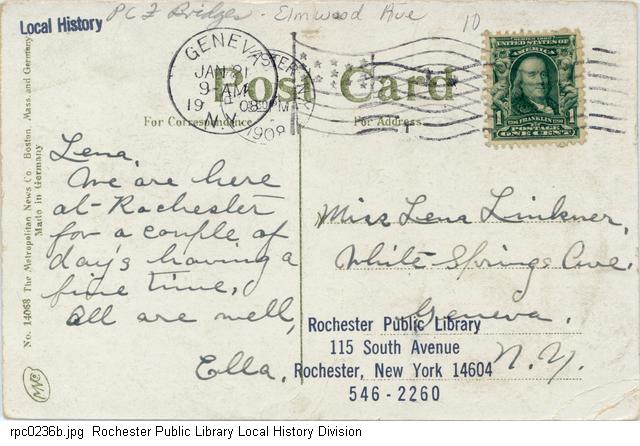 Local History
PC 2 Bridges - Elmwood Ave
10
GENEVA
JAN 21
9 AM
1908
N.Y.
Post Card
For Correspondence
For Address
UNITED STATES OF AMERICA
1
FRANKLIN
1
POSTAGE
ONE CENT
No. 14068 The Metropolitan News Co. Boston, Mass. and Germany
Made in Germany
Lena,
We are here
at Rochester
for a couple of
day's having a
fine time,
all are well,
Ella.
Miss Lena Linkner,
White Springs Ave.
Geneva.
N.Y.
Rochester Public Library
115 South Avenue
Rochester, New York 14604
546-2260
rpc0236b.jpg Rochester Public Library Local History Division